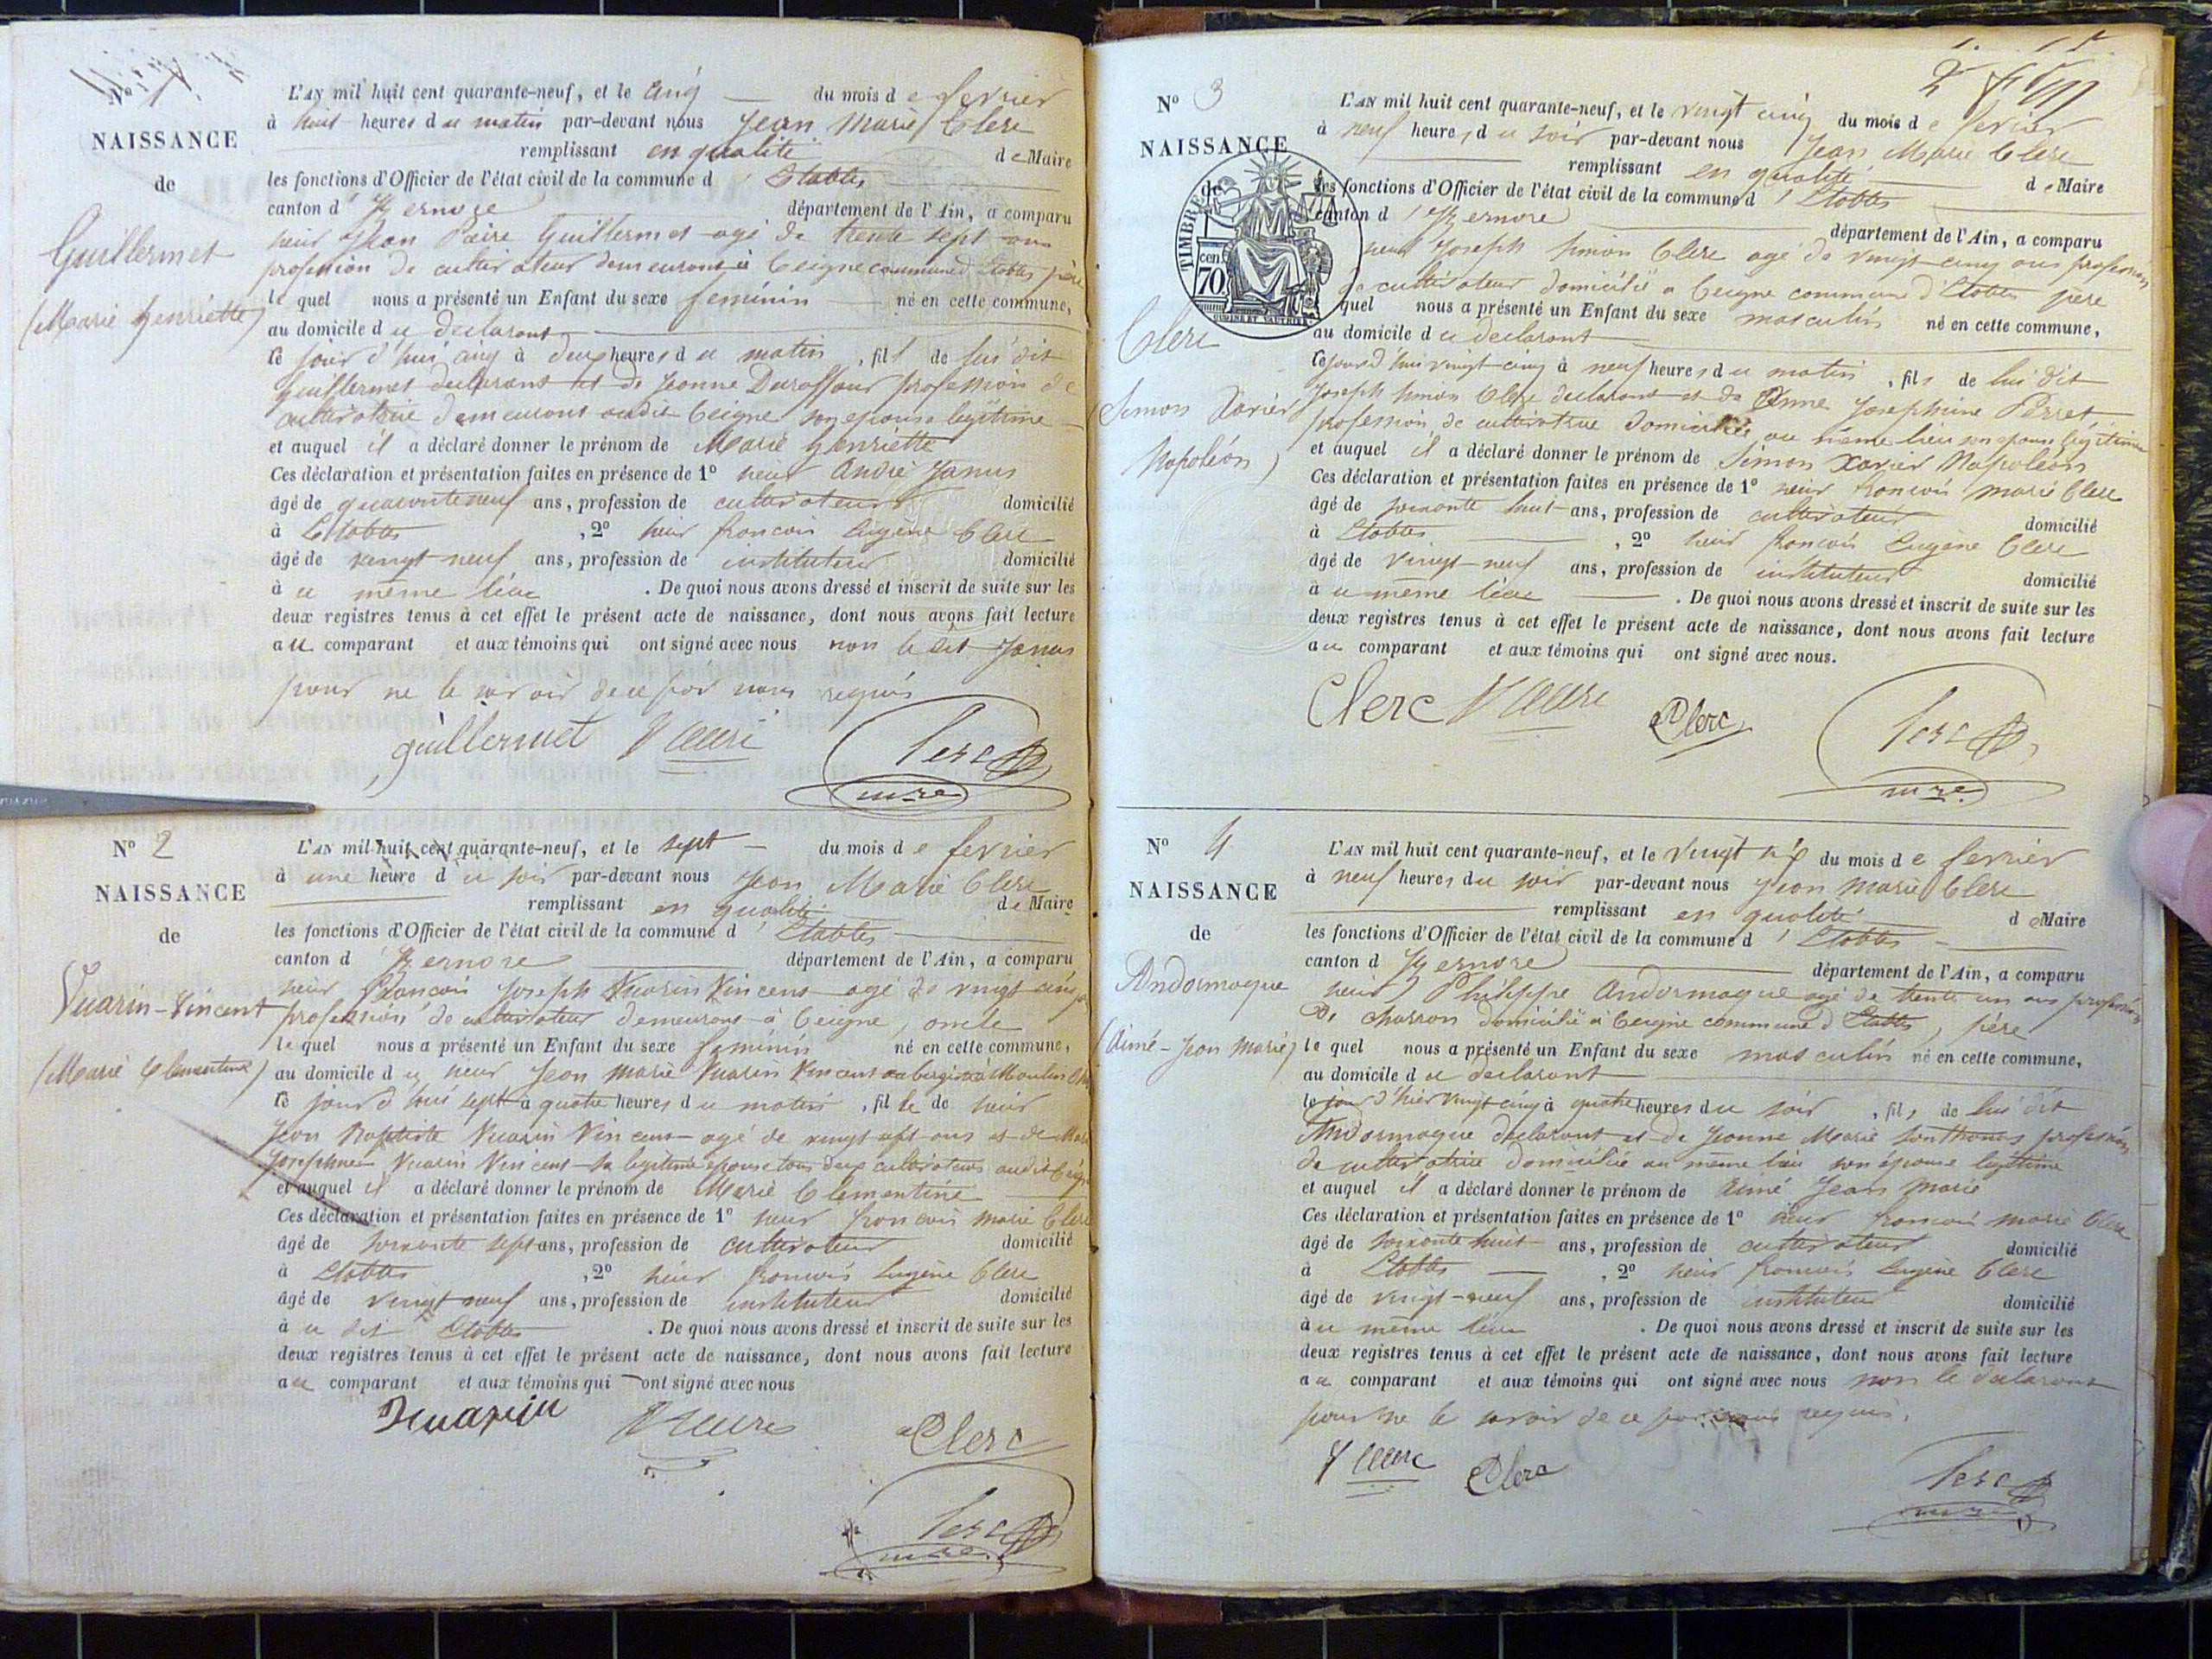 NAISSANCE
de
Guillermet
(Marie henriette)
L'AN mil huit cent quarante-neuf, et le cinq du mois de fevrier
à huit heures du matin par-devant nous Jean Marie Clerc
remplissant en qualité de Maire
les fonctions d'Officier de l'état civil de la commune d'Etables
canton d'Izernore département de l'Ain, a comparu
sieur Jean Guillermet agé de trente sept ans
profession de cultivateur demeurant à Ceigne commune d'Etables père
lequel nous a présenté un Enfant du sexe feminin né en cette commune,
au domicile du declarant
ce jour d'hui cinq à deux heures du matin, fil de lui dit
Guillermet declarant et de Jeanne Duraffour profession de
cultivatrice demeurant audit Ceigne son epouse legitime
et auquel il a déclaré donner le prénom de Marie henriette
Ces déclaration et présentation faites en présence de 1° sieur André Janus
âgé de quarante neuf ans, profession de cultivateur domicilié
à Etables, 2° sieur francois Eugène Clerc
âgé de vingt-neuf ans, profession de instituteur domicilié
à ce même lieu. De quoi nous avons dressé et inscrit de suite sur les
deux registres tenus à cet effet le présent acte de naissance, dont nous avons fait lecture
au comparant et aux témoins qui ont signé avec nous non le dit Janus
pour ne le savoir de ce par nous requis
guillermet Clerc
mre
N° 2
NAISSANCE
de
Vuarin-Vincent
(Marie Clementine)
L'AN mil huit cent quarante-neuf, et le sept du mois de fevrier
à une heure du soir par-devant nous Jean Marie Clerc
remplissant en qualité de Maire
les fonctions d'Officier de l'état civil de la commune d'Etables
canton d'Izernore département de l'Ain, a comparu
sieur francois Joseph Vuarin Vincent agé de vingt cinq
profession de cultivateur demeurant à Ceigne, oncle
lequel nous a présenté un Enfant du sexe feminin né en cette commune,
au domicile du sieur Jean Marie Vuarin Vincent
ce jour d'hui sept à quatre heures du matin, fille de sieur
Jean Baptiste Vuarin Vincent agé de vingt sept ans et de
Josephine Vuarin Vincent sa legitime epouse tous deux cultivateurs audit
et auquel il a déclaré donner le prénom de Marie Clementine
Ces déclaration et présentation faites en présence de 1° sieur francois marie Clerc
âgé de soixante sept ans, profession de cultivateur domicilié
à Etables, 2° sieur francois Eugène Clerc
âgé de vingt neuf ans, profession de instituteur domicilié
à ce dit Etables. De quoi nous avons dressé et inscrit de suite sur les
deux registres tenus à cet effet le présent acte de naissance, dont nous avons fait lecture
au comparant et aux témoins qui ont signé avec nous
Vuarin Clerc
Clerc
mre
N° 3
NAISSANCE
de
TIMBRE
70 cen
Clerc
Simon Xavier
Napoléon)
L'AN mil huit cent quarante-neuf, et le vingt cinq du mois de fevrier
à neuf heures du soir par-devant nous Jean Marie Clerc
remplissant en qualité de Maire
les fonctions d'Officier de l'état civil de la commune d'Etables
canton d'Izernore département de l'Ain, a comparu
sieur Joseph Simon Clerc agé de vingt-cinq ans profession
de cultivateur domicilié a Ceigne commune d'Etables père
quel nous a présenté un Enfant du sexe masculin né en cette commune,
au domicile du declarant
ce jourd'hui vingt-cinq à neuf heures du matin, fils de lui dit
Joseph Simon Clerc declarant et de Anne Josephine Perret
profession de cultivatrice domiciliée au même lieu son epouse legitime
et auquel il a déclaré donner le prénom de Simon Xavier Napoléon
Ces déclaration et présentation faites en présence de 1° sieur francois marie Clerc
âgé de soixante huit ans, profession de cultivateur domicilié
à Etables, 2° sieur francois Eugène Clerc
âgé de vingt-neuf ans, profession de instituteur domicilié
à ce même lieu. De quoi nous avons dressé et inscrit de suite sur les
deux registres tenus à cet effet le présent acte de naissance, dont nous avons fait lecture
au comparant et aux témoins qui ont signé avec nous.
Clerc Clerc Clerc
mre
N° 4
NAISSANCE
de
Andormaque
(Aimé-Jean Marie)
L'AN mil huit cent quarante-neuf, et le vingt six du mois de fevrier
à neuf heures du soir par-devant nous Jean Marie Clerc
remplissant en qualité de Maire
les fonctions d'Officier de l'état civil de la commune d'Etables
canton d'Izernore département de l'Ain, a comparu
sieur Philippe Andormaque agé de trente un ans profession
de charron domicilié à Ceigne commune d'Etables, père
lequel nous a présenté un Enfant du sexe masculin né en cette commune,
au domicile du declarant
le jour d'hier vingt-cinq à quatre heures du soir, fils de lui dit
Andormaque declarant et de Jeanne Marie Sonthonas profession
de cultivatrice domiciliée au même lieu son épouse legitime
et auquel il a déclaré donner le prénom de Aimé Jean Marie
Ces déclaration et présentation faites en présence de 1° sieur francois marie Clerc
âgé de soixante huit ans, profession de cultivateur domicilié
à Etables, 2° sieur francois Eugène Clerc
âgé de vingt-neuf ans, profession de instituteur domicilié
à ce même lieu. De quoi nous avons dressé et inscrit de suite sur les
deux registres tenus à cet effet le présent acte de naissance, dont nous avons fait lecture
au comparant et aux témoins qui ont signé avec nous non le declarant
pour ne le savoir de ce par nous requis.
Clerc Clerc
mre